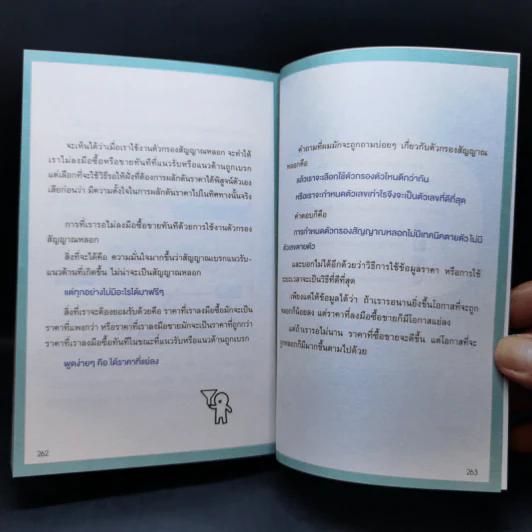 จะเห็นได้ว่าเมื่อเราใช้งานตัวกรองสัญญาณหลอก จะทำให้
เราไม่ลงมือซื้อหรือขายทันทีที่แนวรับหรือแนวต้านถูกเบรก
แต่เลือกที่จะใช้วิธีรอให้ฝั่งที่ต้องการผลักดันราคาได้พิสูจน์ตัวเอง
เสียก่อนว่า มีความตั้งใจในการผลักดันราคาไปในทิศทางนั้นจริง
การที่เรารอไม่ลงมือซื้อขายทันทีด้วยการใช้งานตัวกรอง
สัญญาณหลอก
สิ่งที่จะได้คือ ความมั่นใจมากขึ้นว่าสัญญาณเบรกแนวรับ-
แนวต้านที่เกิดขึ้น ไม่น่าจะเป็นสัญญาณหลอก
แต่ทุกอย่างไม่มีอะไรได้มาฟรีๆ
สิ่งที่เราจะต้องยอมรับด้วยคือ ราคาที่เราลงมือซื้อมักจะเป็น
ราคาที่แพงกว่า หรือราคาที่เราลงมือขายมักจะเป็นราคาที่ถูกกว่า
ราคาที่เราลงมือซื้อทันทีในขณะที่แนวรับหรือแนวต้านถูกเบรก
พูดง่ายๆ คือ ได้ราคาที่แย่ลง
262
คำถามที่ผมมักจะถูกถามบ่อยๆ เกี่ยวกับตัวกรองสัญญาณ
หลอกคือ
แล้วเราจะเลือกใช้ตัวกรองตัวไหนดีกว่ากัน
หรือเราจะกำหนดตัวเลขเท่าไรจึงจะเป็นตัวเลขที่ดีที่สุด
คำตอบก็คือ
การกำหนดตัวกรองสัญญาณหลอกไม่มีเทคนิคตายตัว ไม่มี
ตัวเลขตายตัว
และบอกไม่ได้อีกด้วยว่าวิธีการใช้ข้อมูลราคา หรือการใช้
ระยะเวลาจะเป็นวิธีที่ดีที่สุด
เพียงแต่ให้ข้อมูลได้ว่า ถ้าเรารอนานยิ่งขึ้นโอกาสที่จะถูก
หลอกก็น้อยลง แต่ราคาที่ลงมือซื้อขายก็มีโอกาสแย่ลง
แต่ถ้าเรารอไม่นาน ราคาที่ซื้อขายจะดีขึ้น แต่โอกาสที่จะ
ถูกหลอกก็มีมากขึ้นตามไปด้วย
263